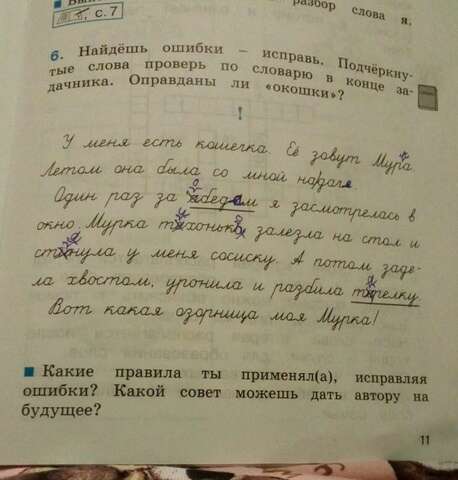 разбор слова я.
, с. 7
6. Найдёшь ошибки – исправь. Подчёркну-
тые слова проверь по словарю в конце за-
дачника. Оправданы ли «окошки»?
!
У меня есть кошечка. Её зовут Мура.
Летом она была со мной на даче
Один раз за обедом я засмотрелась в
окно. Мурка тихонько залезла на стол и
стянула у меня сосиску. А потом заде-
ла хвостом, уронила и разбила тарелку.
Вот какая озорница моя Мурка!
Какие правила ты применял(а), исправляя
ошибки? Какой совет можешь дать автору на
будущее?
11